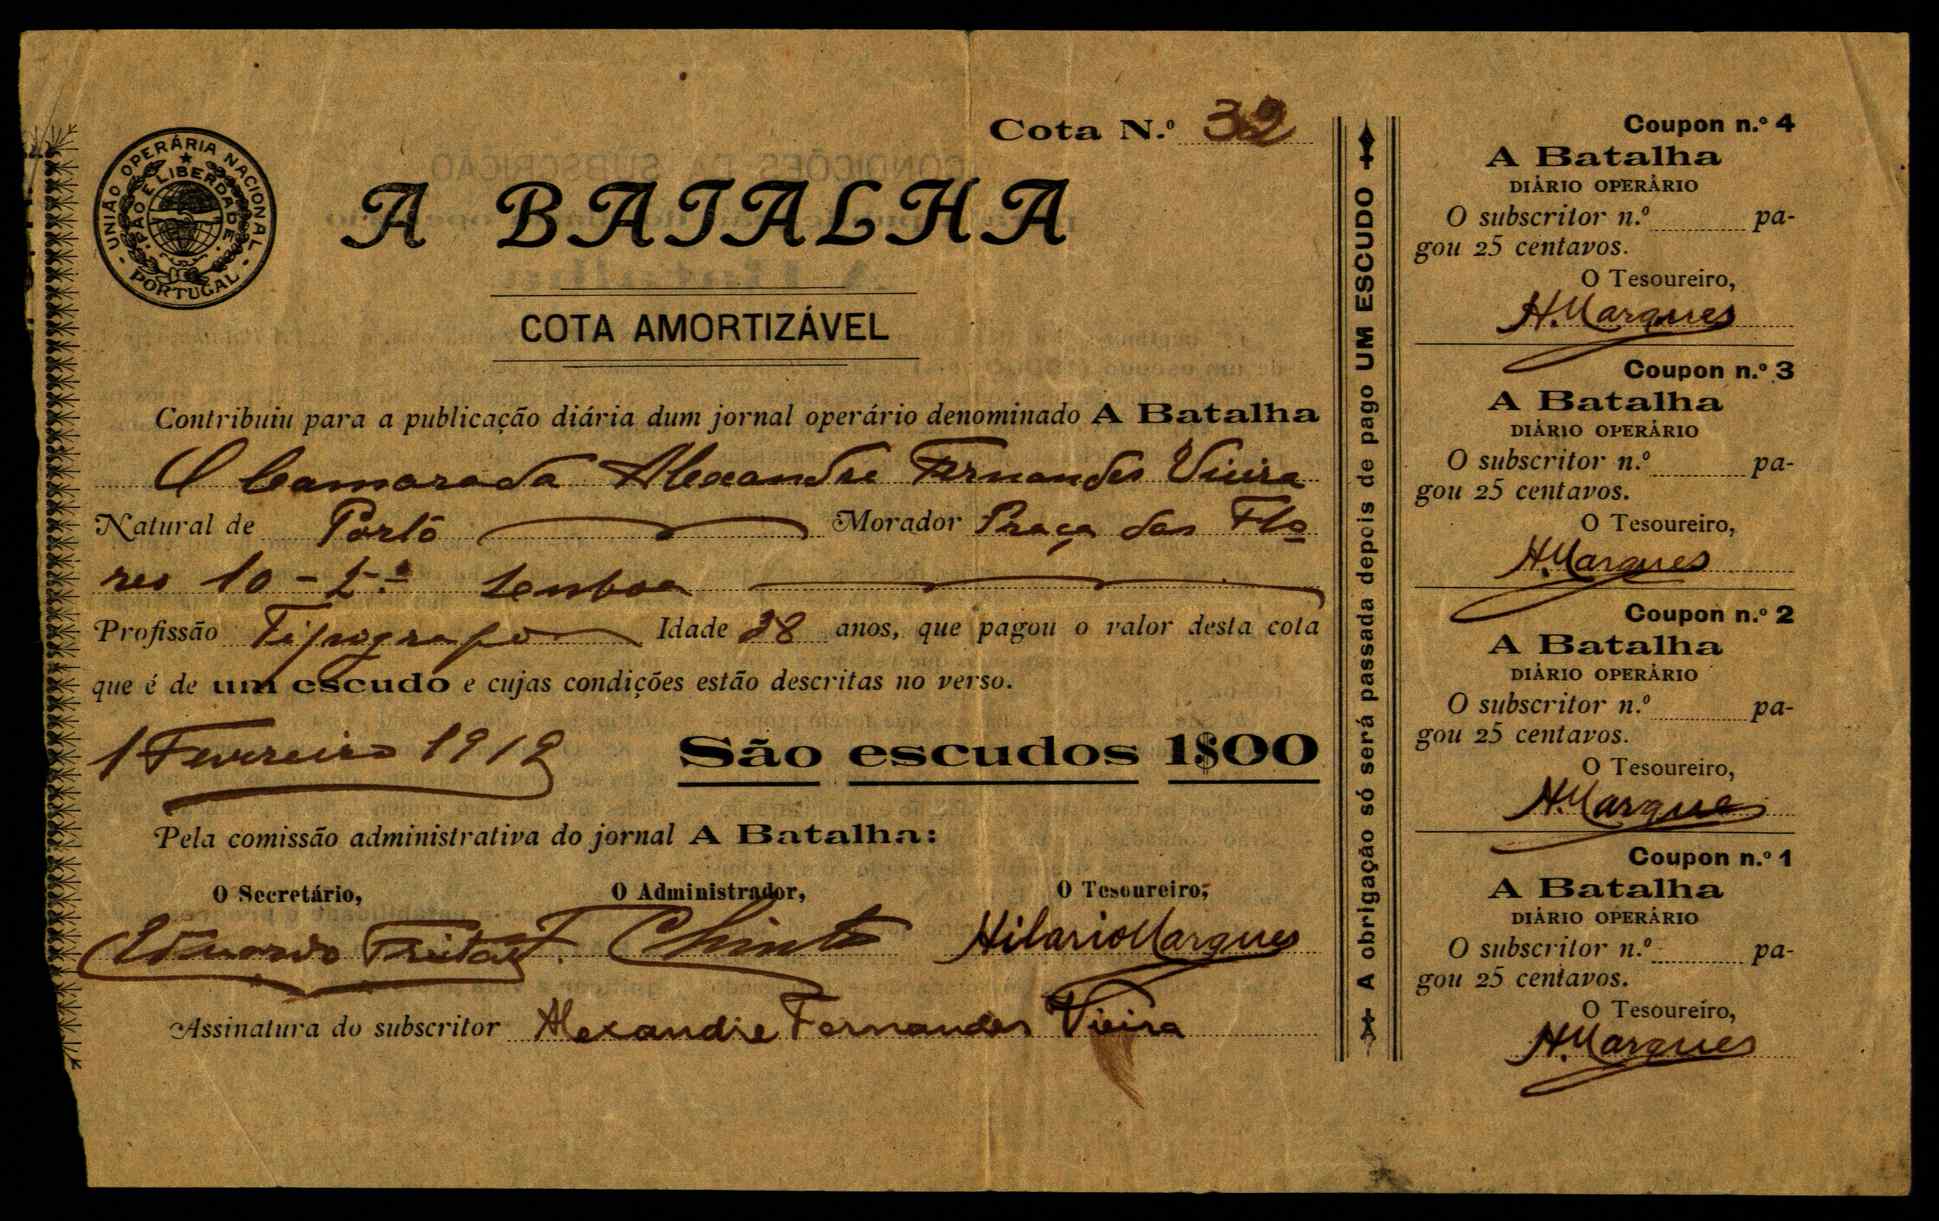 Cota N.º 32
UNIÃO OPERÁRIA NACIONAL
PÃO E LIBERDADE
PORTUGAL
A BATALHA
COTA AMORTIZÁVEL
Contribuiu para a publicação diária dum jornal operário denominado A Batalha
O Camarada Alexandre Fernandes Vieira
Natural de Porto Morador Praça das Flo
res 10 - 2.º Lisboa
Profissão Tipografo Idade 38 anos, que pagou o valor desta cota
que é de um escudo e cujas condições estão descritas no verso.
1 Fevereiro 1919 São escudos 1$00
Pela comissão administrativa do jornal A Batalha:
O Secretário, O Administrador, O Tesoureiro,
Eduardo Freitas Hilario Marques
Assinatura do subscritor Alexandre Fernandes Vieira
A obrigação só será passada depois de pago UM ESCUDO
Coupon n.º 4
A Batalha
DIÁRIO OPERÁRIO
O subscritor n.º pa-
gou 25 centavos.
O Tesoureiro,
H. Marques
Coupon n.º 3
A Batalha
DIÁRIO OPERÁRIO
O subscritor n.º pa-
gou 25 centavos.
O Tesoureiro,
H. Marques
Coupon n.º 2
A Batalha
DIÁRIO OPERÁRIO
O subscritor n.º pa-
gou 25 centavos.
O Tesoureiro,
H. Marques
Coupon n.º 1
A Batalha
DIÁRIO OPERÁRIO
O subscritor n.º pa-
gou 25 centavos.
O Tesoureiro,
H. Marques